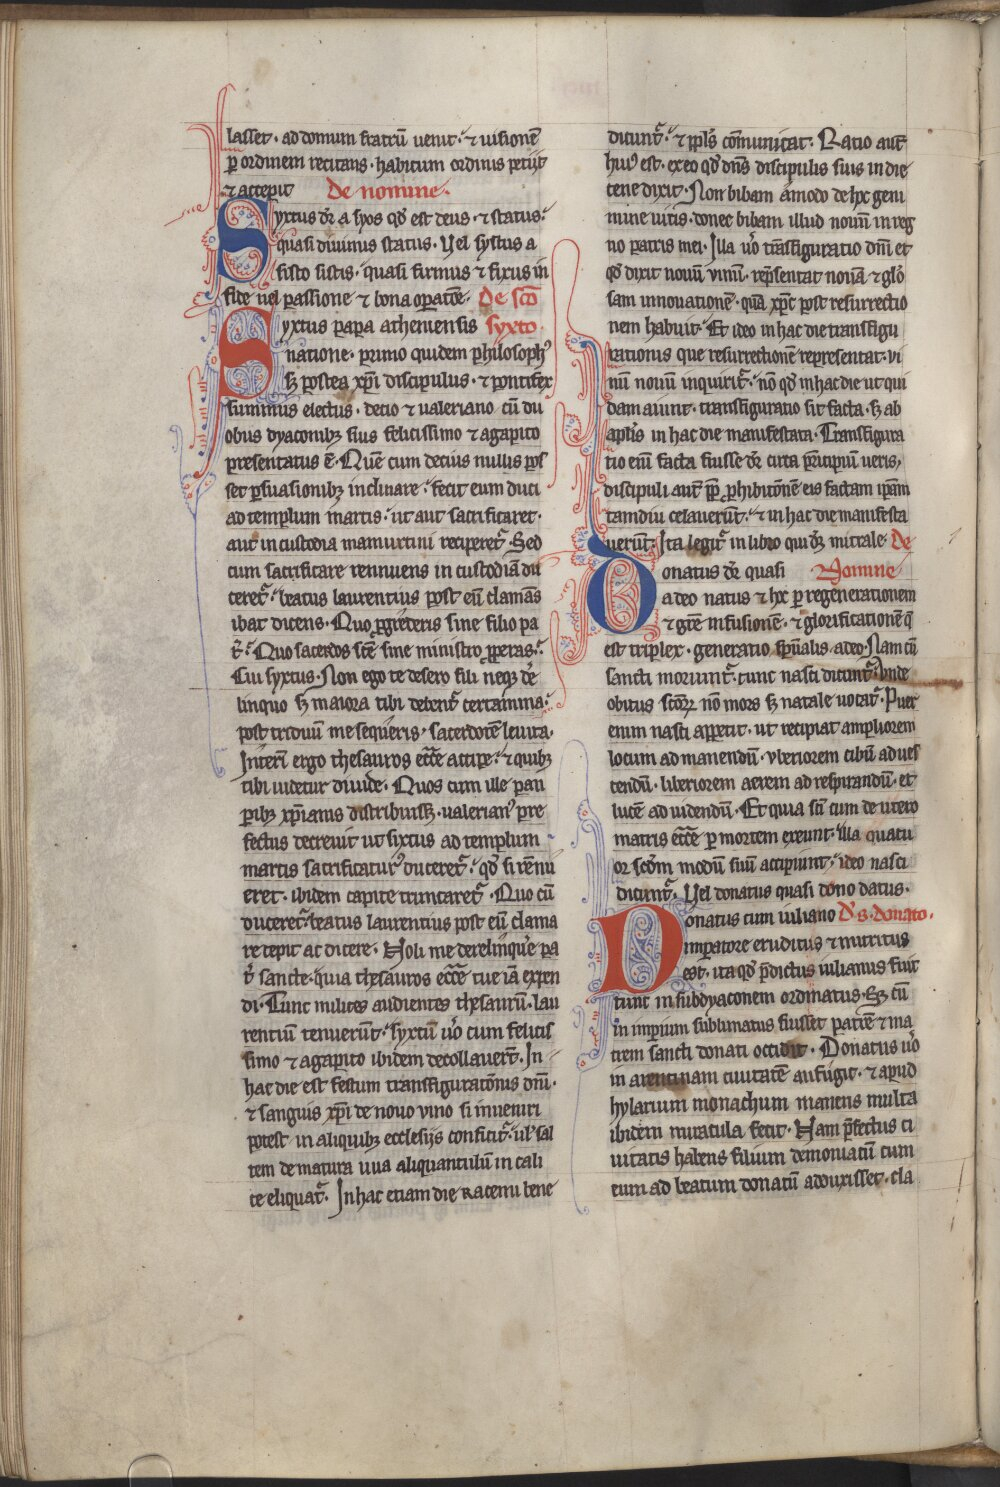 lasset · ad domum fratrū uenit ·⁊ uisionē
ꝑ ordinem recitans · habitum ordinis petijt
⁊ accepit De nomine ·
Syxtus dr̄ a syos qđ est deus · ⁊ status ·
quasi diuinus status · Uel systus a
sisto sistis · quasi firmus ⁊ fixus in
fide uel passione ⁊ bona oꝑatōe · De sc̄o
Syxtus papa atheniensis syxto
natione · primo quidem philosophꝰ
sꝫ postea xp̄i discipulus · ⁊ pontifex
summus electus · decio ⁊ ualeriano cū du
obus dyaconibꝫ suis felicissimo ⁊ agapito
presentatus ē · Quē cum decius nullis pos
set ꝑsuasionibꝫ inclinare · fecit eum duci
ad templum martis · ut aut sacrificaret ·
aut in custodia mamurtini reciperet᷑ · Sed
cum sacrificare rennuens in custodiā du
ceret᷑ · beatus laurentius post eū clamās
ibat dicens · Quo ꝓgrederis sine filio pa
t̄ · Quo sacerdos sc̄e sine ministro ꝓperas ·
Cui syxtus · Non ego te desero fili neqꝫ de
linquo sꝫ maiora tibi debent᷑ certamina ·
post triduū me sequeris · sacerdotē leuita ·
Interī ergo thesauros ecc̄e accipe · ⁊ quibꝫ
tibi uidetur diuide · Quos cum ille pau
ꝑibꝫ xp̄ianis distribuissꝫ · ualerianꝰ pre
fectus decreuit ut sixtus ad templum
martis sacrificaturꝰ duceret᷑ · qđ si rēnu
eret · ibidem capite truncaret᷑ · Quo cū
duceret᷑ · beatus laurentius post eū clama
re cepit ac dicere · Noli me derelinquere pa
t̄ sancte · quia thesauros ecc̄e tue iā expen
di · Tunc milites audientes thesaurū · lau
rentiū tenuerūt · syxtū ůo cum felicis
simo ⁊ agapito ibidem decollauerūt · In
hac die est festum transfiguratōnis dn̄i ·
⁊ sanguis xp̄i de nouo uino si inueniri
potest in aliquibꝫ ecclesijs conficit᷑ · ul' sal
tem de matura uua aliquantulū in cali
ce eliquat᷑ · In hac etiam die racemi bene
dicunt᷑ · ⁊ ppl's cōmunicat · Ratio aut̄
huiꝰ est · ex eo qđ dn̄s discipulis suis in die
cene dixit · Non bibam amodo de hoc geni
mine uitis · donec bibam illud nouū in reg
no patris mei · Illa ůo trāsfiguratio dn̄i et
qđ dixit nouū uinū · rep̄sentat nouā ⁊ glo
sam innouationē · quā xp̄c post resurrectio
nem habuit · Et ideo in hac die transfigu
rationis que resurrectionē representat · ui
nū nouū inquirit᷑ · nō qđ in hac die ut qui
dam aiunt · transfiguratio sit facta · sꝫ ab
apl'is in hac die manifestata · Transfigura
tio enī facta fuisse dr̄ circa p̄ncipiū ueris ·
discipuli aut̄ ꝓp̄ ꝓhibitōnē eis factam ip̄am
tamdiu celauerūt · ⁊ in hac die manifesta
uerūt · Ita legit᷑ in libro qui dr̄ mitrale · De
Donatus dr̄ quasi Nomine
a deo natus ⁊ hoc ꝑ regenerationem
⁊ gr̄e infusionē · ⁊ glorificationē q̄
est triplex · generatio sp̄ualis · a deo · Nam cū
sancti moriunt᷑ · tunc nasci dicunt᷑ · Unde
obitus sc̄orꝝ nō mors sꝫ natale uocat᷑ · Puer
enim nasci appetit · ut recipiat ampliorem
locum ad manendū · vberiorem cibū ad ues
cendū · liberiorem aerem ad respirandū · et
lucē ad uidendū · Et quia sc̄i cum de utero
matris ecc̄e ꝑ mortem exeunt · illa quatu
or sc̄dm modū suū accipiunt · ideo nasci
dicunt᷑ · Uel donatus quasi dono datus ·
Donatus cum iuliano D' s · donato ·
imperatore eruditus ⁊ nutritus
est · ita qđ p̄dictus iulianus fuit
tunc in subdyaconem ordinatus · Sꝫ cū
in imperium sublimatus fuisset patrē ⁊ ma
trem sancti donati occidit · Donatus ůo
in arentinam ciuitatē aufugit · ⁊ apud
hylarium monachum manens multa
ibidem miracula fecit · Nam p̄fectus ci
uitatis habens filium demoniacū cum
eum ad beatum donatū adduxisset · cla